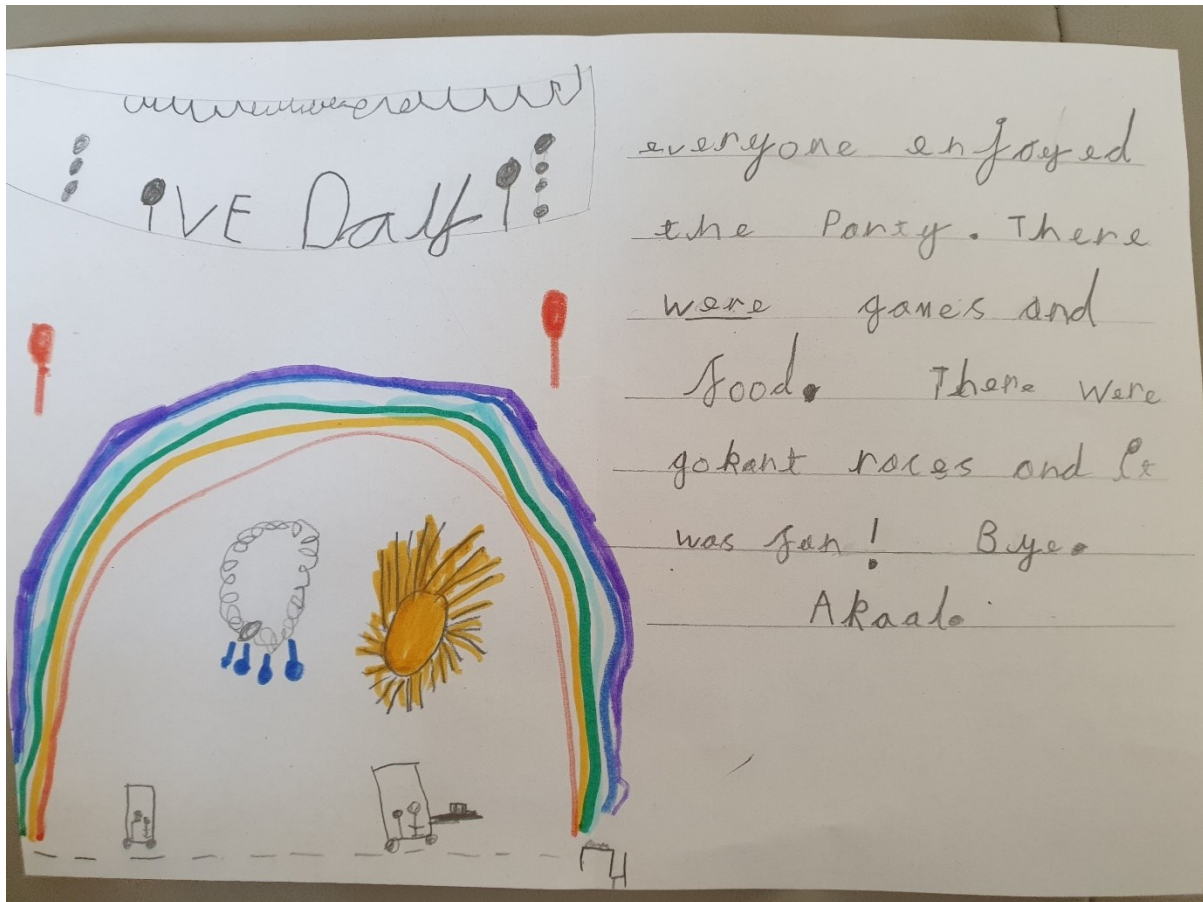 VE Day
everyone enjoyed
the Party. There
were games and
food. There were
gokart races and It
was fun! Bye.
Akaal.